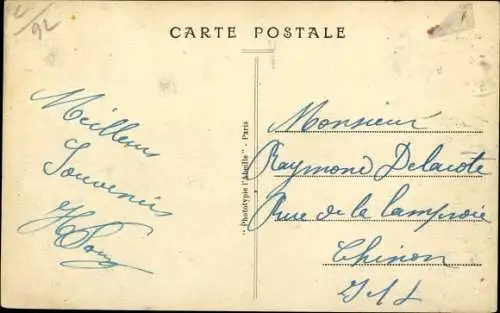 92
CARTE POSTALE
Meilleurs
Souvenirs
"Phototypie l'Abeille" - Paris
Monsieur
Raymond Delacote
Rue de la lamproie
Chinon
I & L